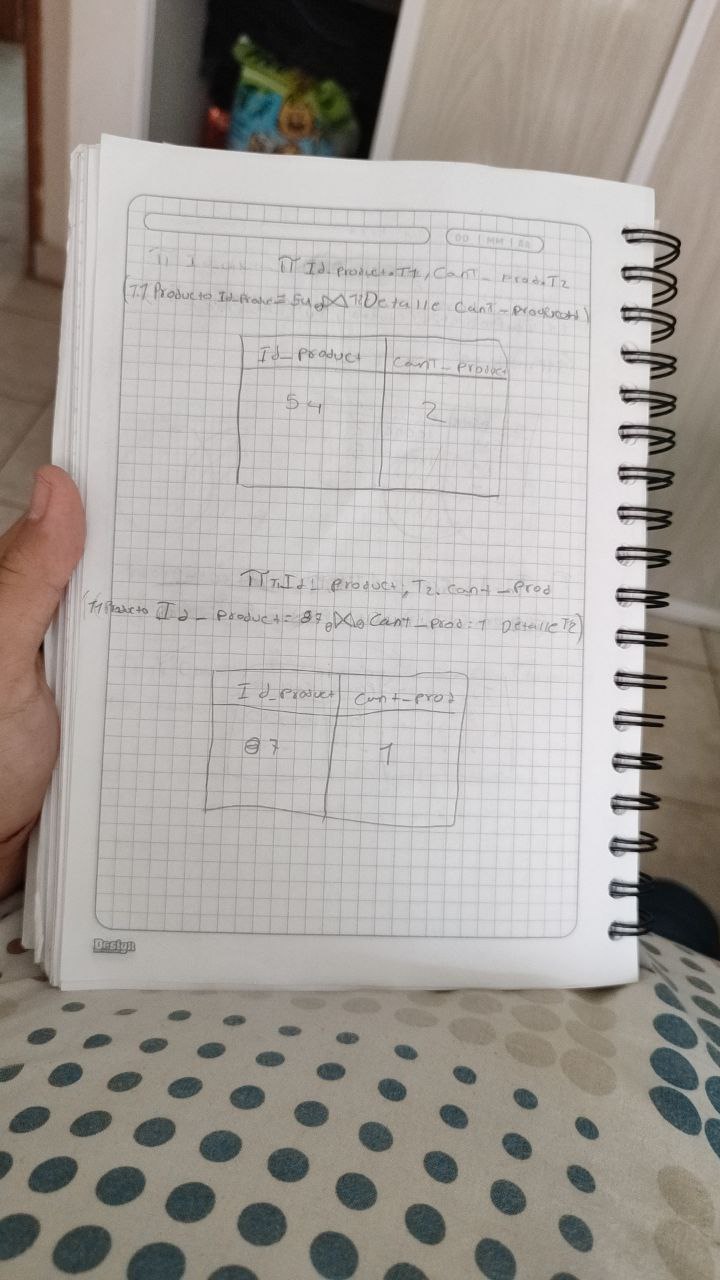 DD MM AA
π Id_producto.T1, Cant_Prod.T2
(T1 Producto Id_Produc = 54 ⋈ T2 Detalle Cant-producto)
Id_product Cant_product
54 2
π T1.Id_product, T2.cant_Prod
(T1 Producto Id_product = 87 ⋈ Cant_prod = 1 Detalle T2)
Id_product Cant_prod
87 1
Design